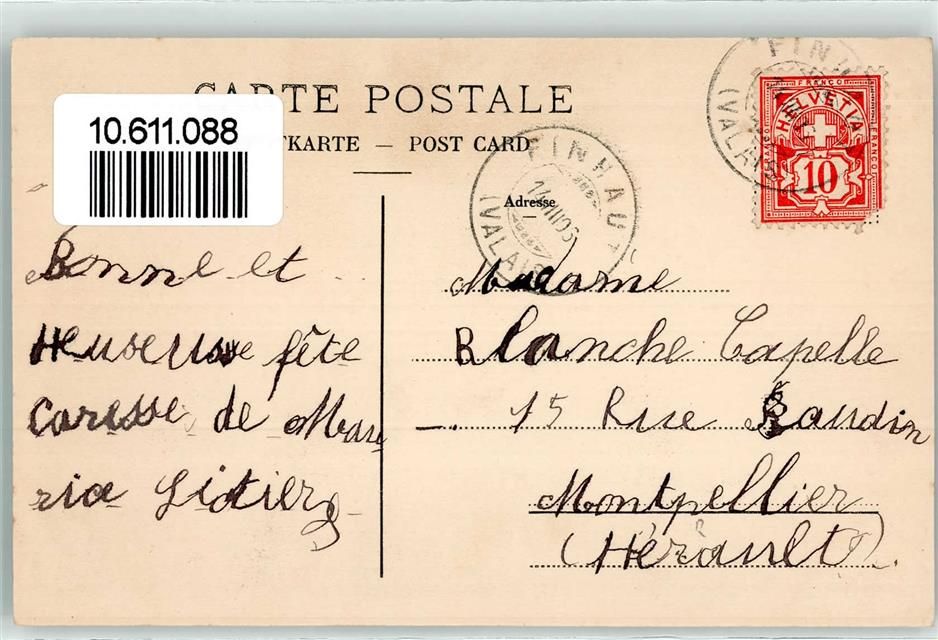 CARTE POSTALE
10.611.088
TKARTE — POST CARD
FINHAUT
(VALAIS)
FRANCO
HELVETIA
FRANCO
FRANCO
10
FINHAUT
(VALAIS)
Adresse
Bonne et
Heureuse fête
Caresse de Mau
ria
Madame
Blanche Capelle
15 Rue Baudin
Montpellier
(Hérault).